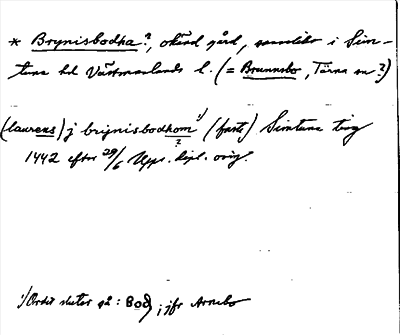 * Brynisbodha?, okänd gård, sannolikt i Sim-
tuna hd Västmanlands l. (= Brunnsbo, Tärna sn?)
(laurens) j brynisbodhom ¹⁾ (faste) Simtuna ting
?
1442 efter 29/6 Upps. dipl. orig.
¹⁾ Ordet slutar på: Bod, jfr Arnebo